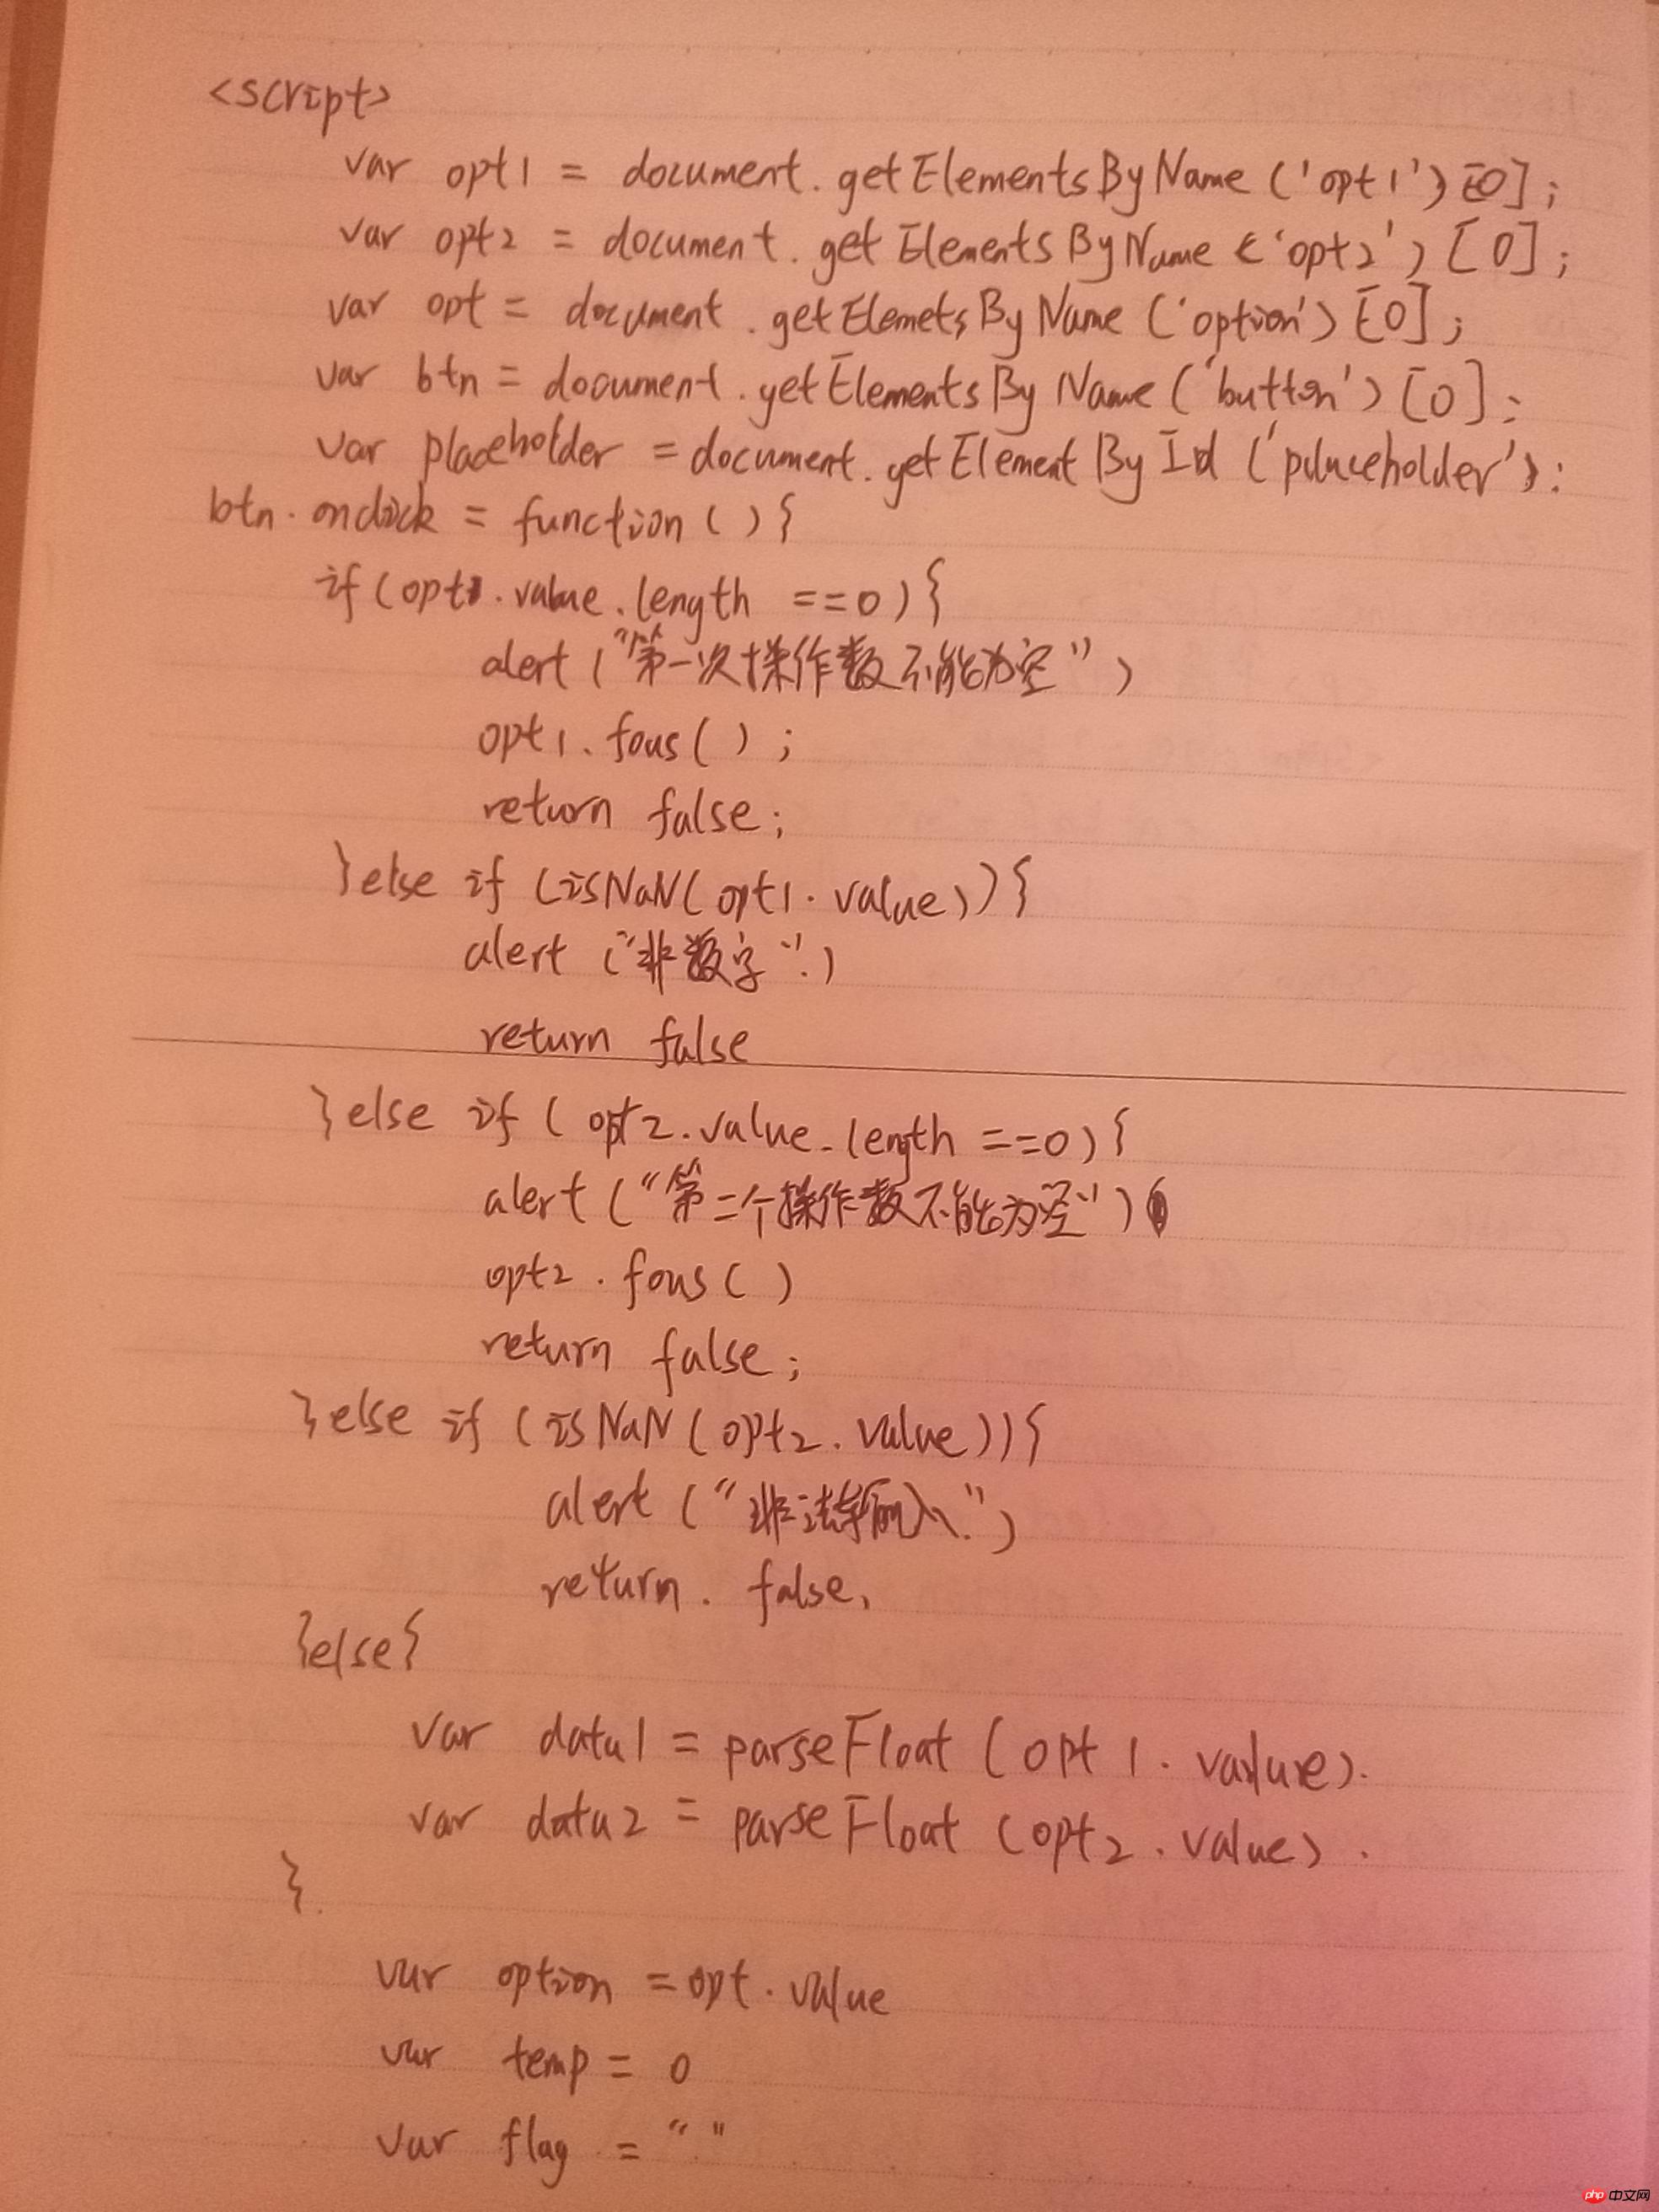 <script>
var opt1 = document.getElementsByName('opt1')[0];
var opt2 = document.getElementsByName('opt2')[0];
var opt = document.getElemetsByName('option')[0];
var btn = document.getElementsByName('button')[0];
var placeholder = document.getElementById('placeholder');
btn.onclick = function(){
if(opt1.value.length ==0){
alert("第一次操作数不能为空")
opt1.fous();
return false;
}else if (isNaN(opt1.value)){
alert("非数字")
return false
}else if(opt2.value.length ==0){
alert("第二个操作数不能为空")
opt2.fous()
return false;
}else if (isNaN(opt2.value)){
alert("非法输入")
return. false,
}else{
var data1 = parseFloat(opt1.value).
var data2 = parseFloat(opt2.value).
}.
var option = opt.value
var temp = 0
var flag = " "
php 中文网